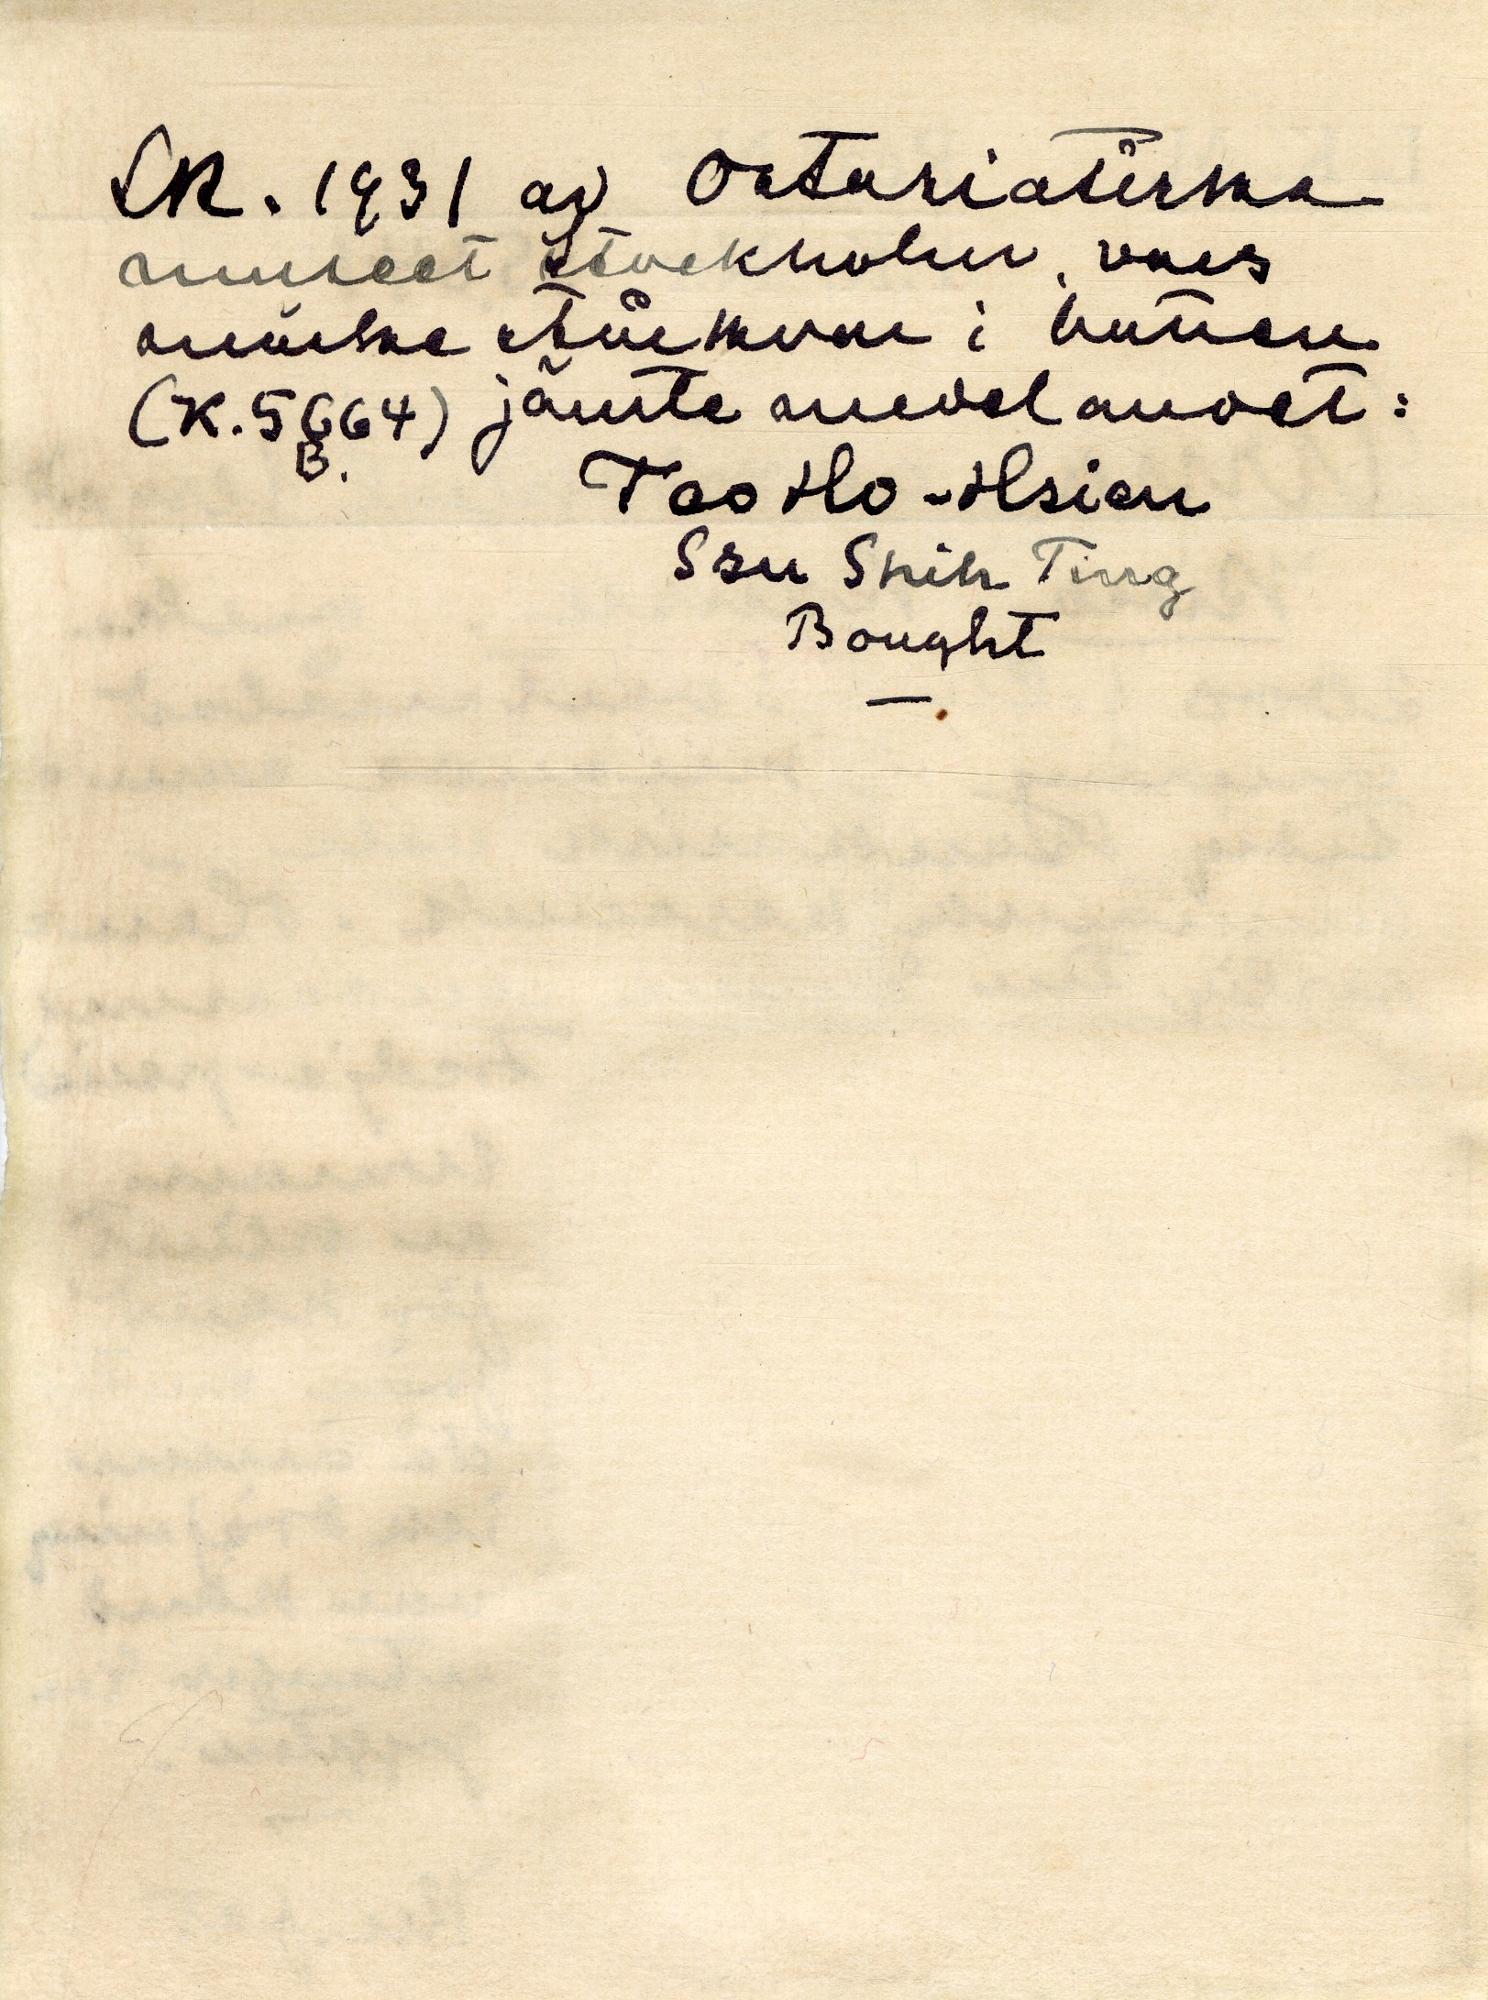 SR. 1931 av Ostasiatiska
museet Stockholm, vars
märke står kvar i botten
(K. 5664) jämte meddelandet:
B.
Tao Ho-Hsien
Szu Shih Ting
Bought
—